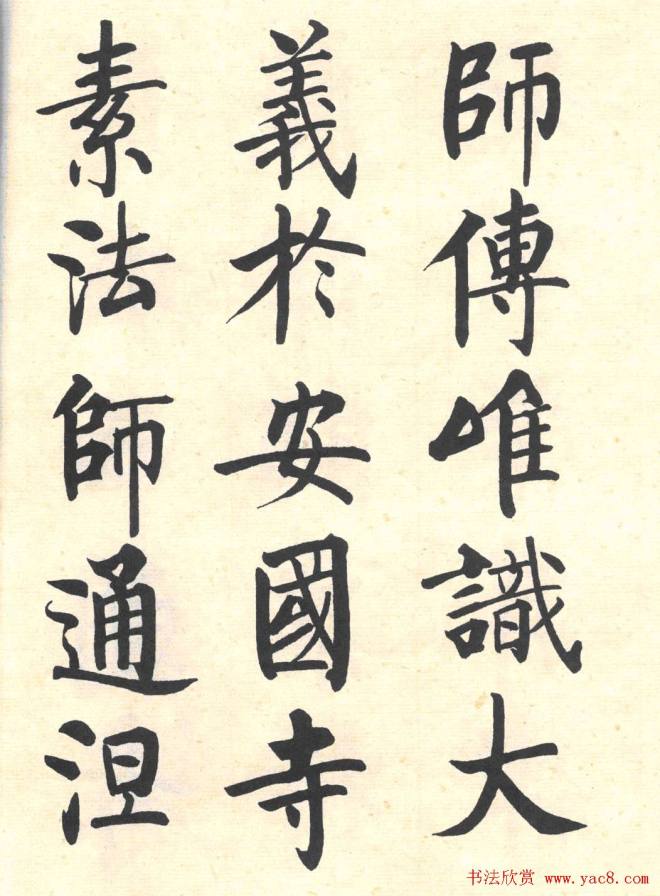 師傳唯識大
義於安國寺
素法師通涅
书法欣赏 www.yac8.com